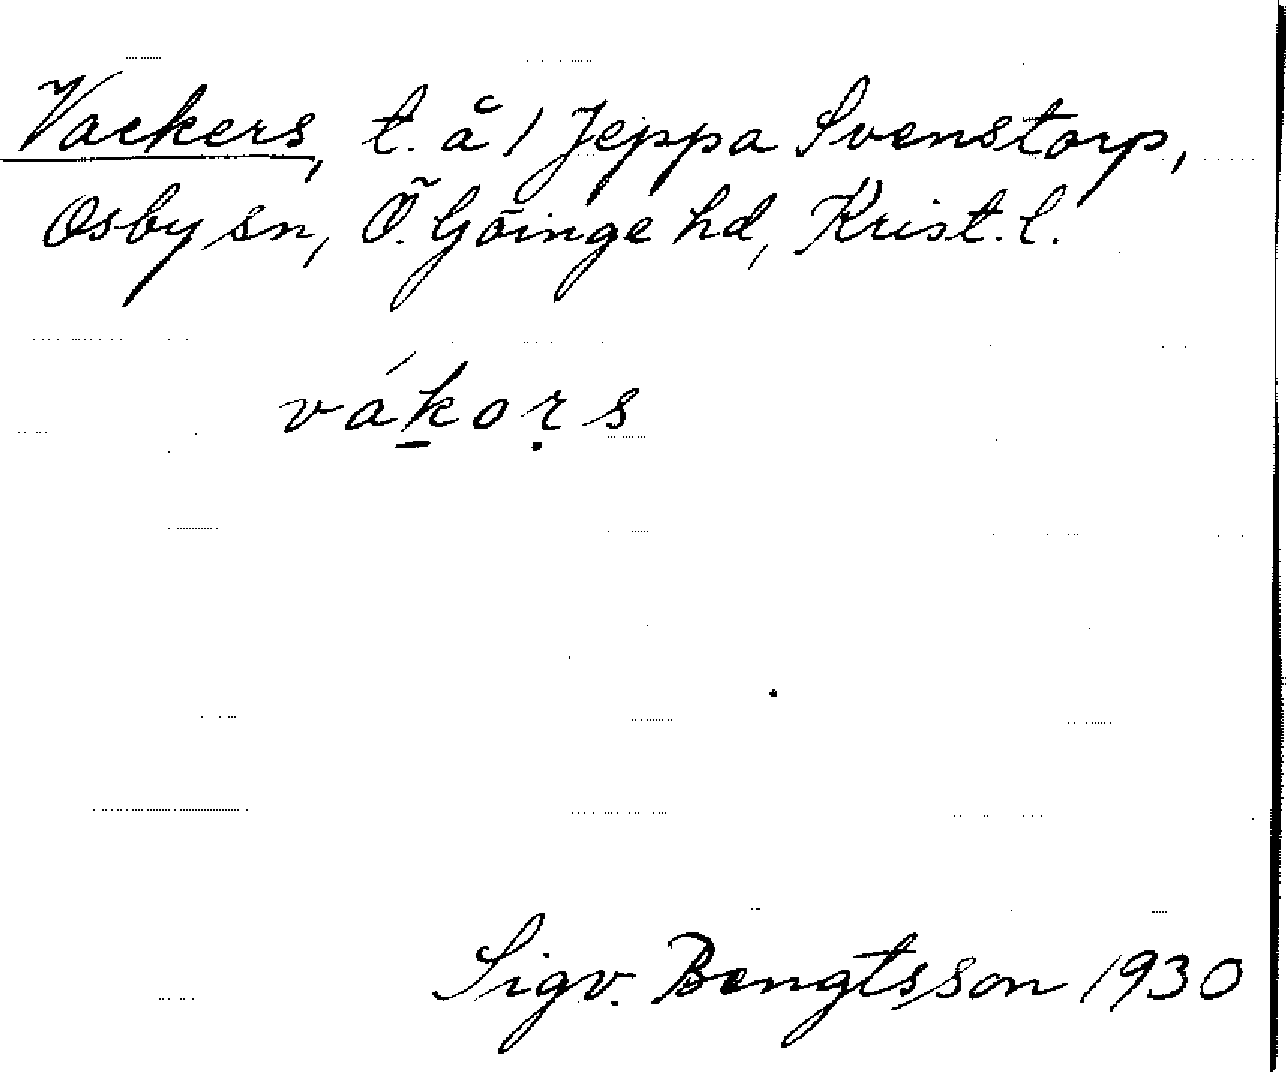 Vackers, t. å 1 Jeppa Svenstorp,
Osby sn, Ö. Göinge hd, Krist. l.
vák̠oṛs
Sigv. Bengtsson 1930